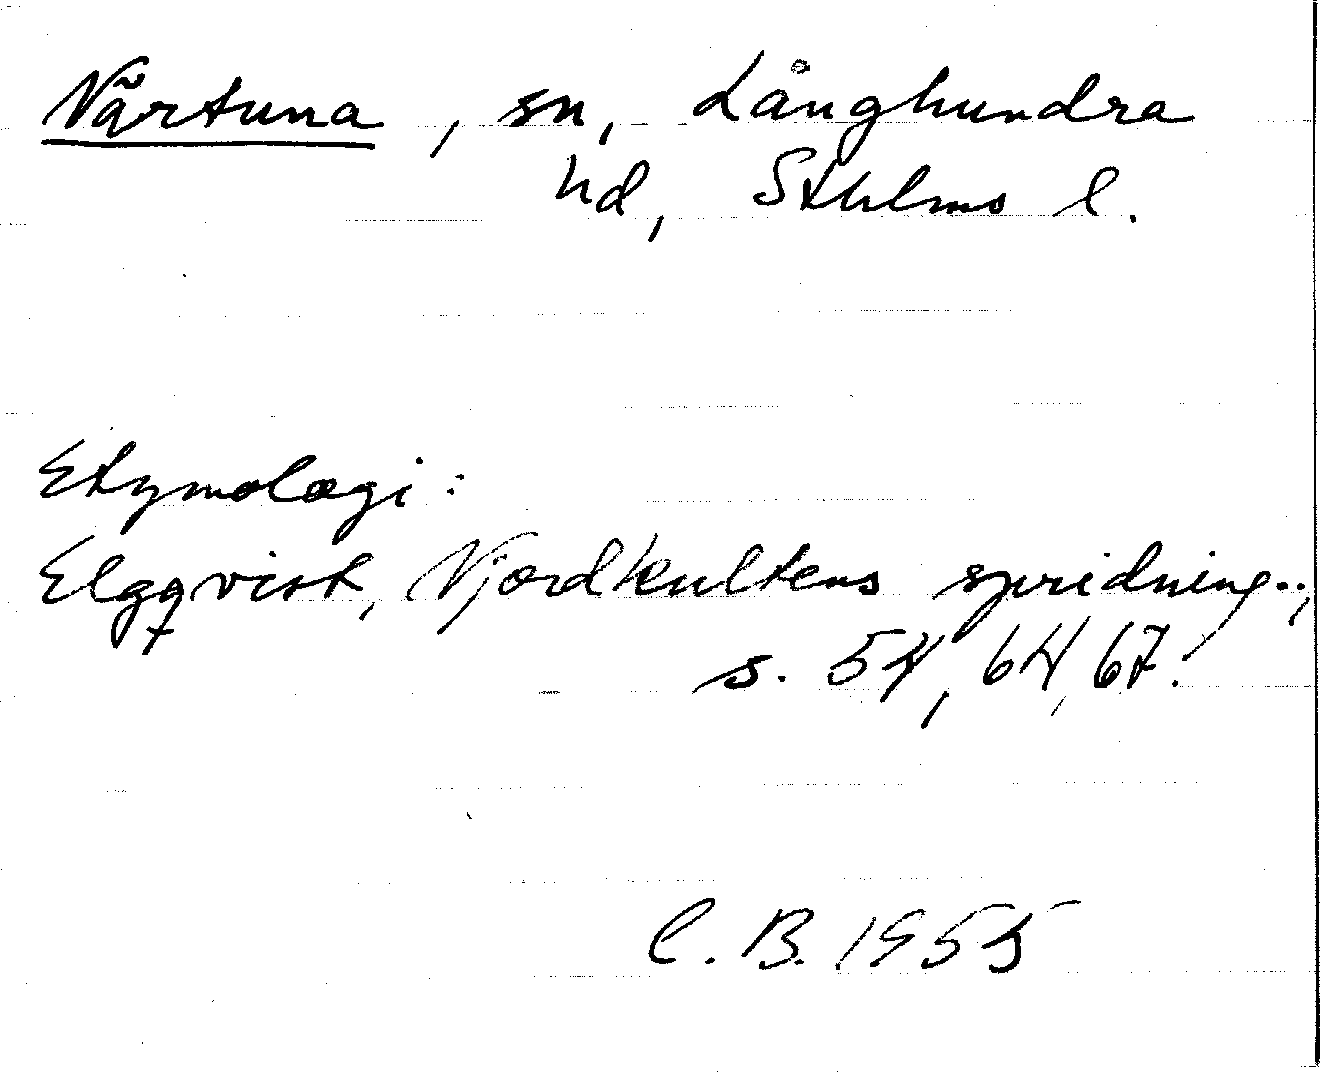 Närtuna, sn, Långhundra
hd, Sthlms l.
Etymologi:
Elgqvist, Njordkultens spridning..,
s. 54, 64, 67.
C. B. 1955